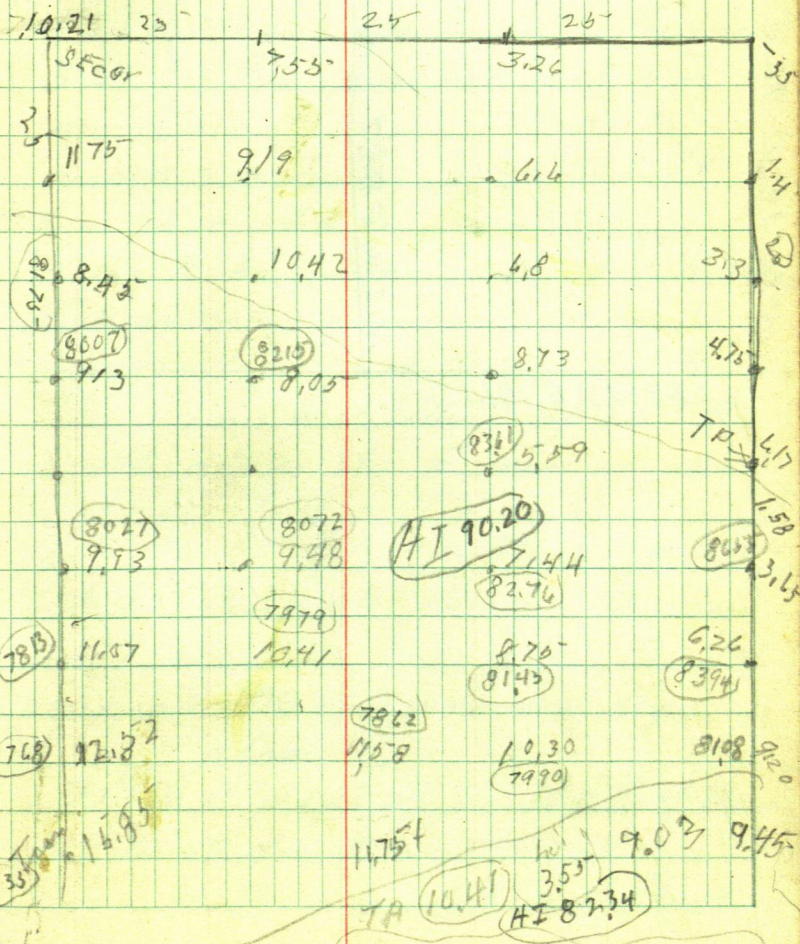 10.21 25 25 25
SEcor 7,55 3.26 -35
25
1175 9,19 6.6 1.4
8175 8,45 10,42 6,8 3.3 20
8007 8215
913 8,05 8,73 4.75
8361 5,59 TP 6,17
1,58
8027 8072 HI 90.20 8655
9,93 9,48 7,44 3,65
82.76
7979
7813 11,07 10,41 8,75 6,26
8145 8394
7862
768 1158 10,30 8108 9,20
7990
15.85 11,75 9.03 9,45
35 3.55
TP 10,41 HI 82.34